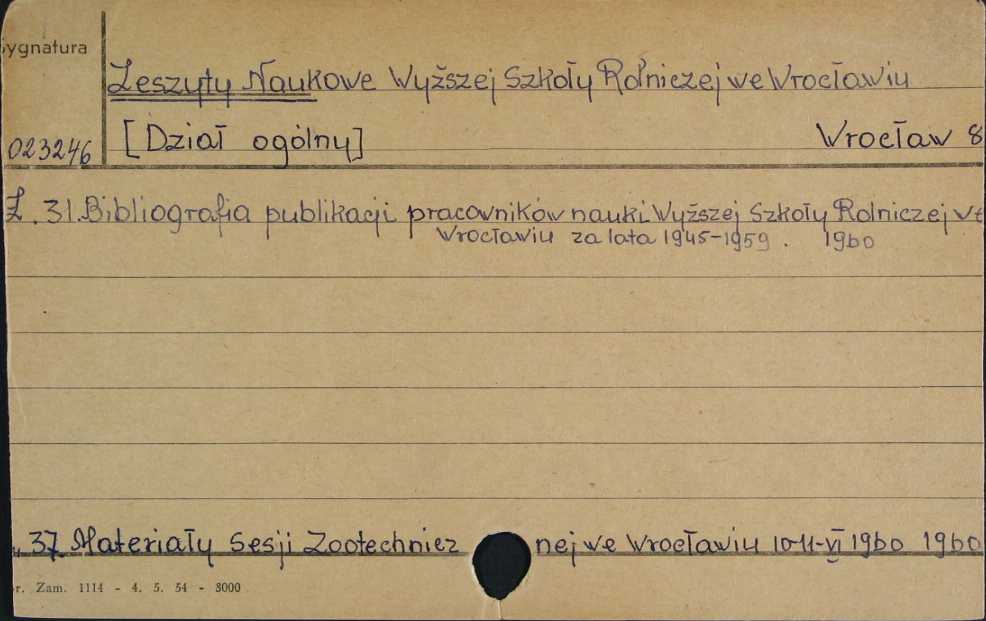 Sygnatura
Zeszyty Naukowe Wyższej Szkoły Rolniczej we Wrocławiu
023246 [Dział ogólny] Wrocław 8
Z. 31. Bibliografia publikacji pracowników nauki Wyższej Szkoły Rolniczej we
Wrocławiu za lata 1945-1959. 1960
„ 37. Materiały Sesji Zootechnicz nej we Wrocławiu 10-11-VI 1960 1960
r. Zam. 1114 - 4. 5. 54 - 3000